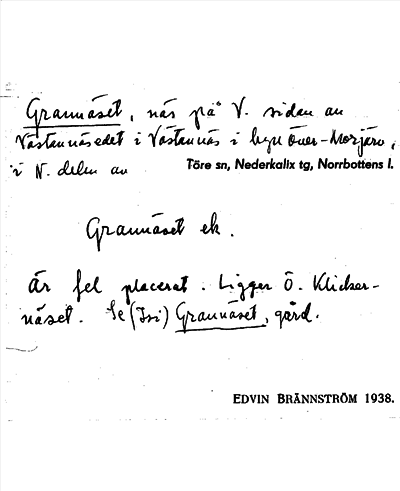 Grannäset, näs på V. sidan av
Västannäsedet i Västannäs i byn Över-Morjärv,
i N. delen av Töre sn, Nederkalix tg, Norrbottens l.
Grannäset ek.
Är fel placerat. Ligger Ö. Klicker-
näset. Se Grannäset, gård.
EDVIN BRÄNNSTRÖM 1938.